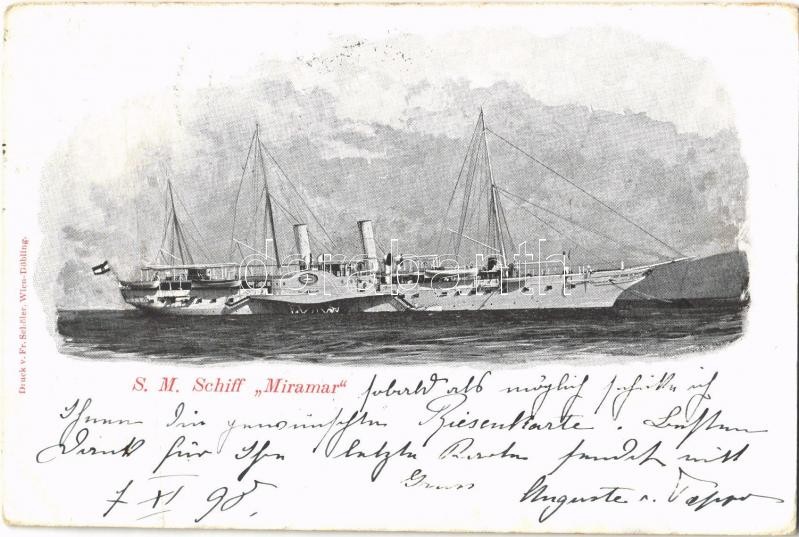 Druck v. Fr. Schöler, Wien-Döbling.
darabanth
S. M. Schiff „Miramar“ sobald als möglich schicke ich
Ihnen die gewünschten Riesenkarte. Besten
Dank für Ihre letzte Karte sendet mit
Gruss
7 XI 98. Auguste v.